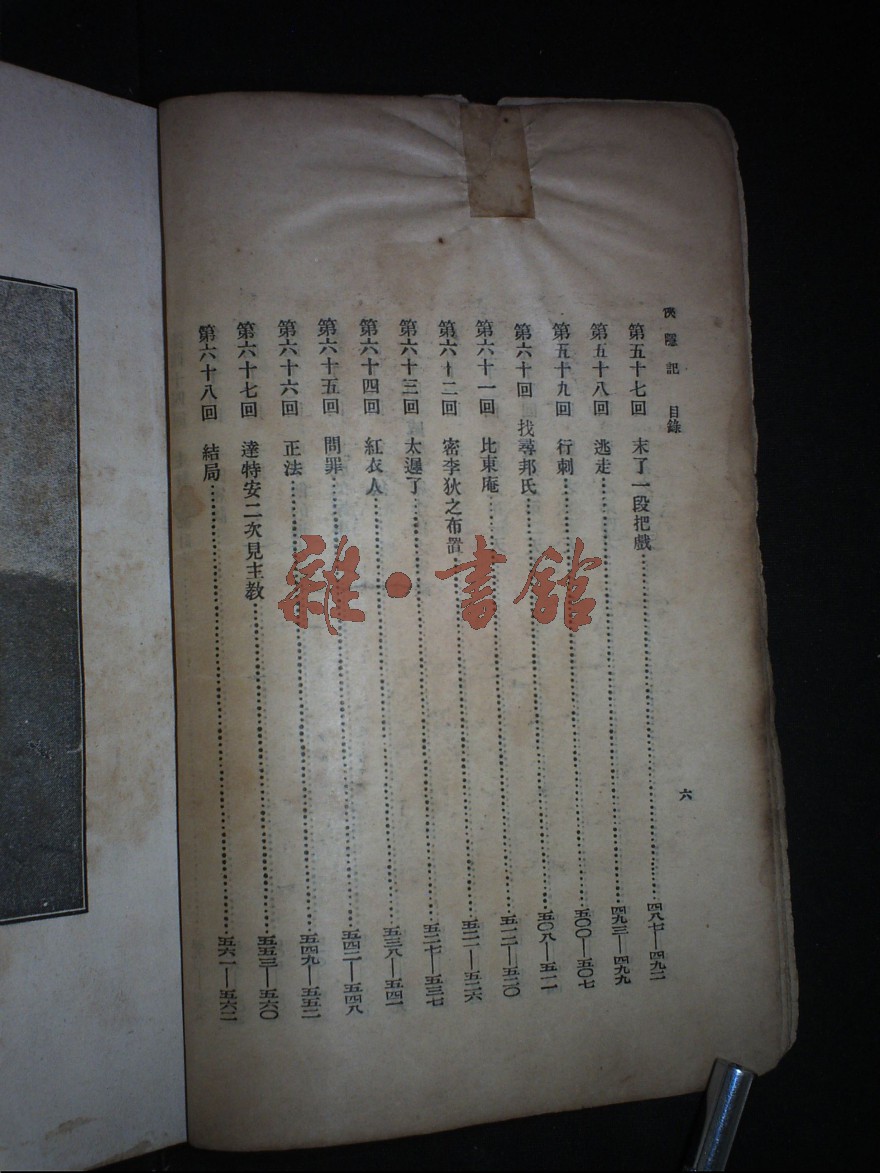 俠隱記 目錄
六
第五十七回 末了一段把戲……四八七—四九二
第五十八回 逃走……四九三—四九九
第五十九回 行刺……五〇〇—五〇七
第六十回 找尋邦氏……五〇八—五一一
第六十一回 比東庵……五一二—五二〇
第六十二回 密李狄之布置……五二一—五二六
第六十三回 太遲了……五二七—五三七
第六十四回 紅衣人……五三八—五四一
第六十五回 問罪……五四二—五四八
第六十六回 正法……五四九—五五二
第六十七回 達特安二次見主教……五五三—五六〇
第六十八回 結局……五六一—五六二
雜·書館